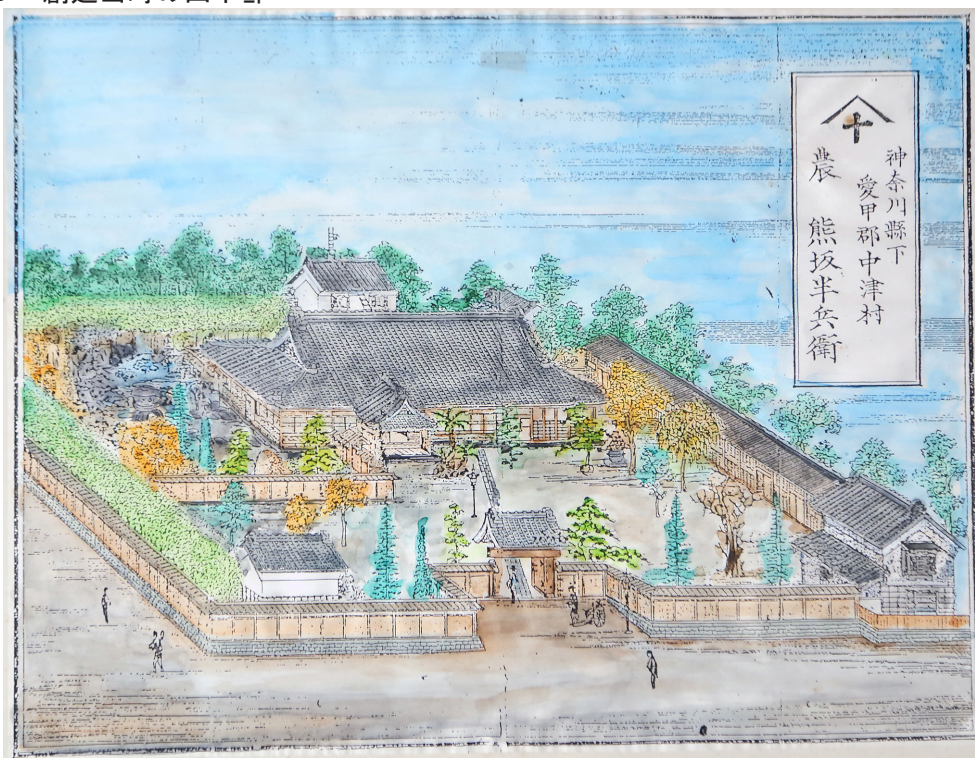 十
神奈川縣下
愛甲郡中津村
農 熊坂半兵衛